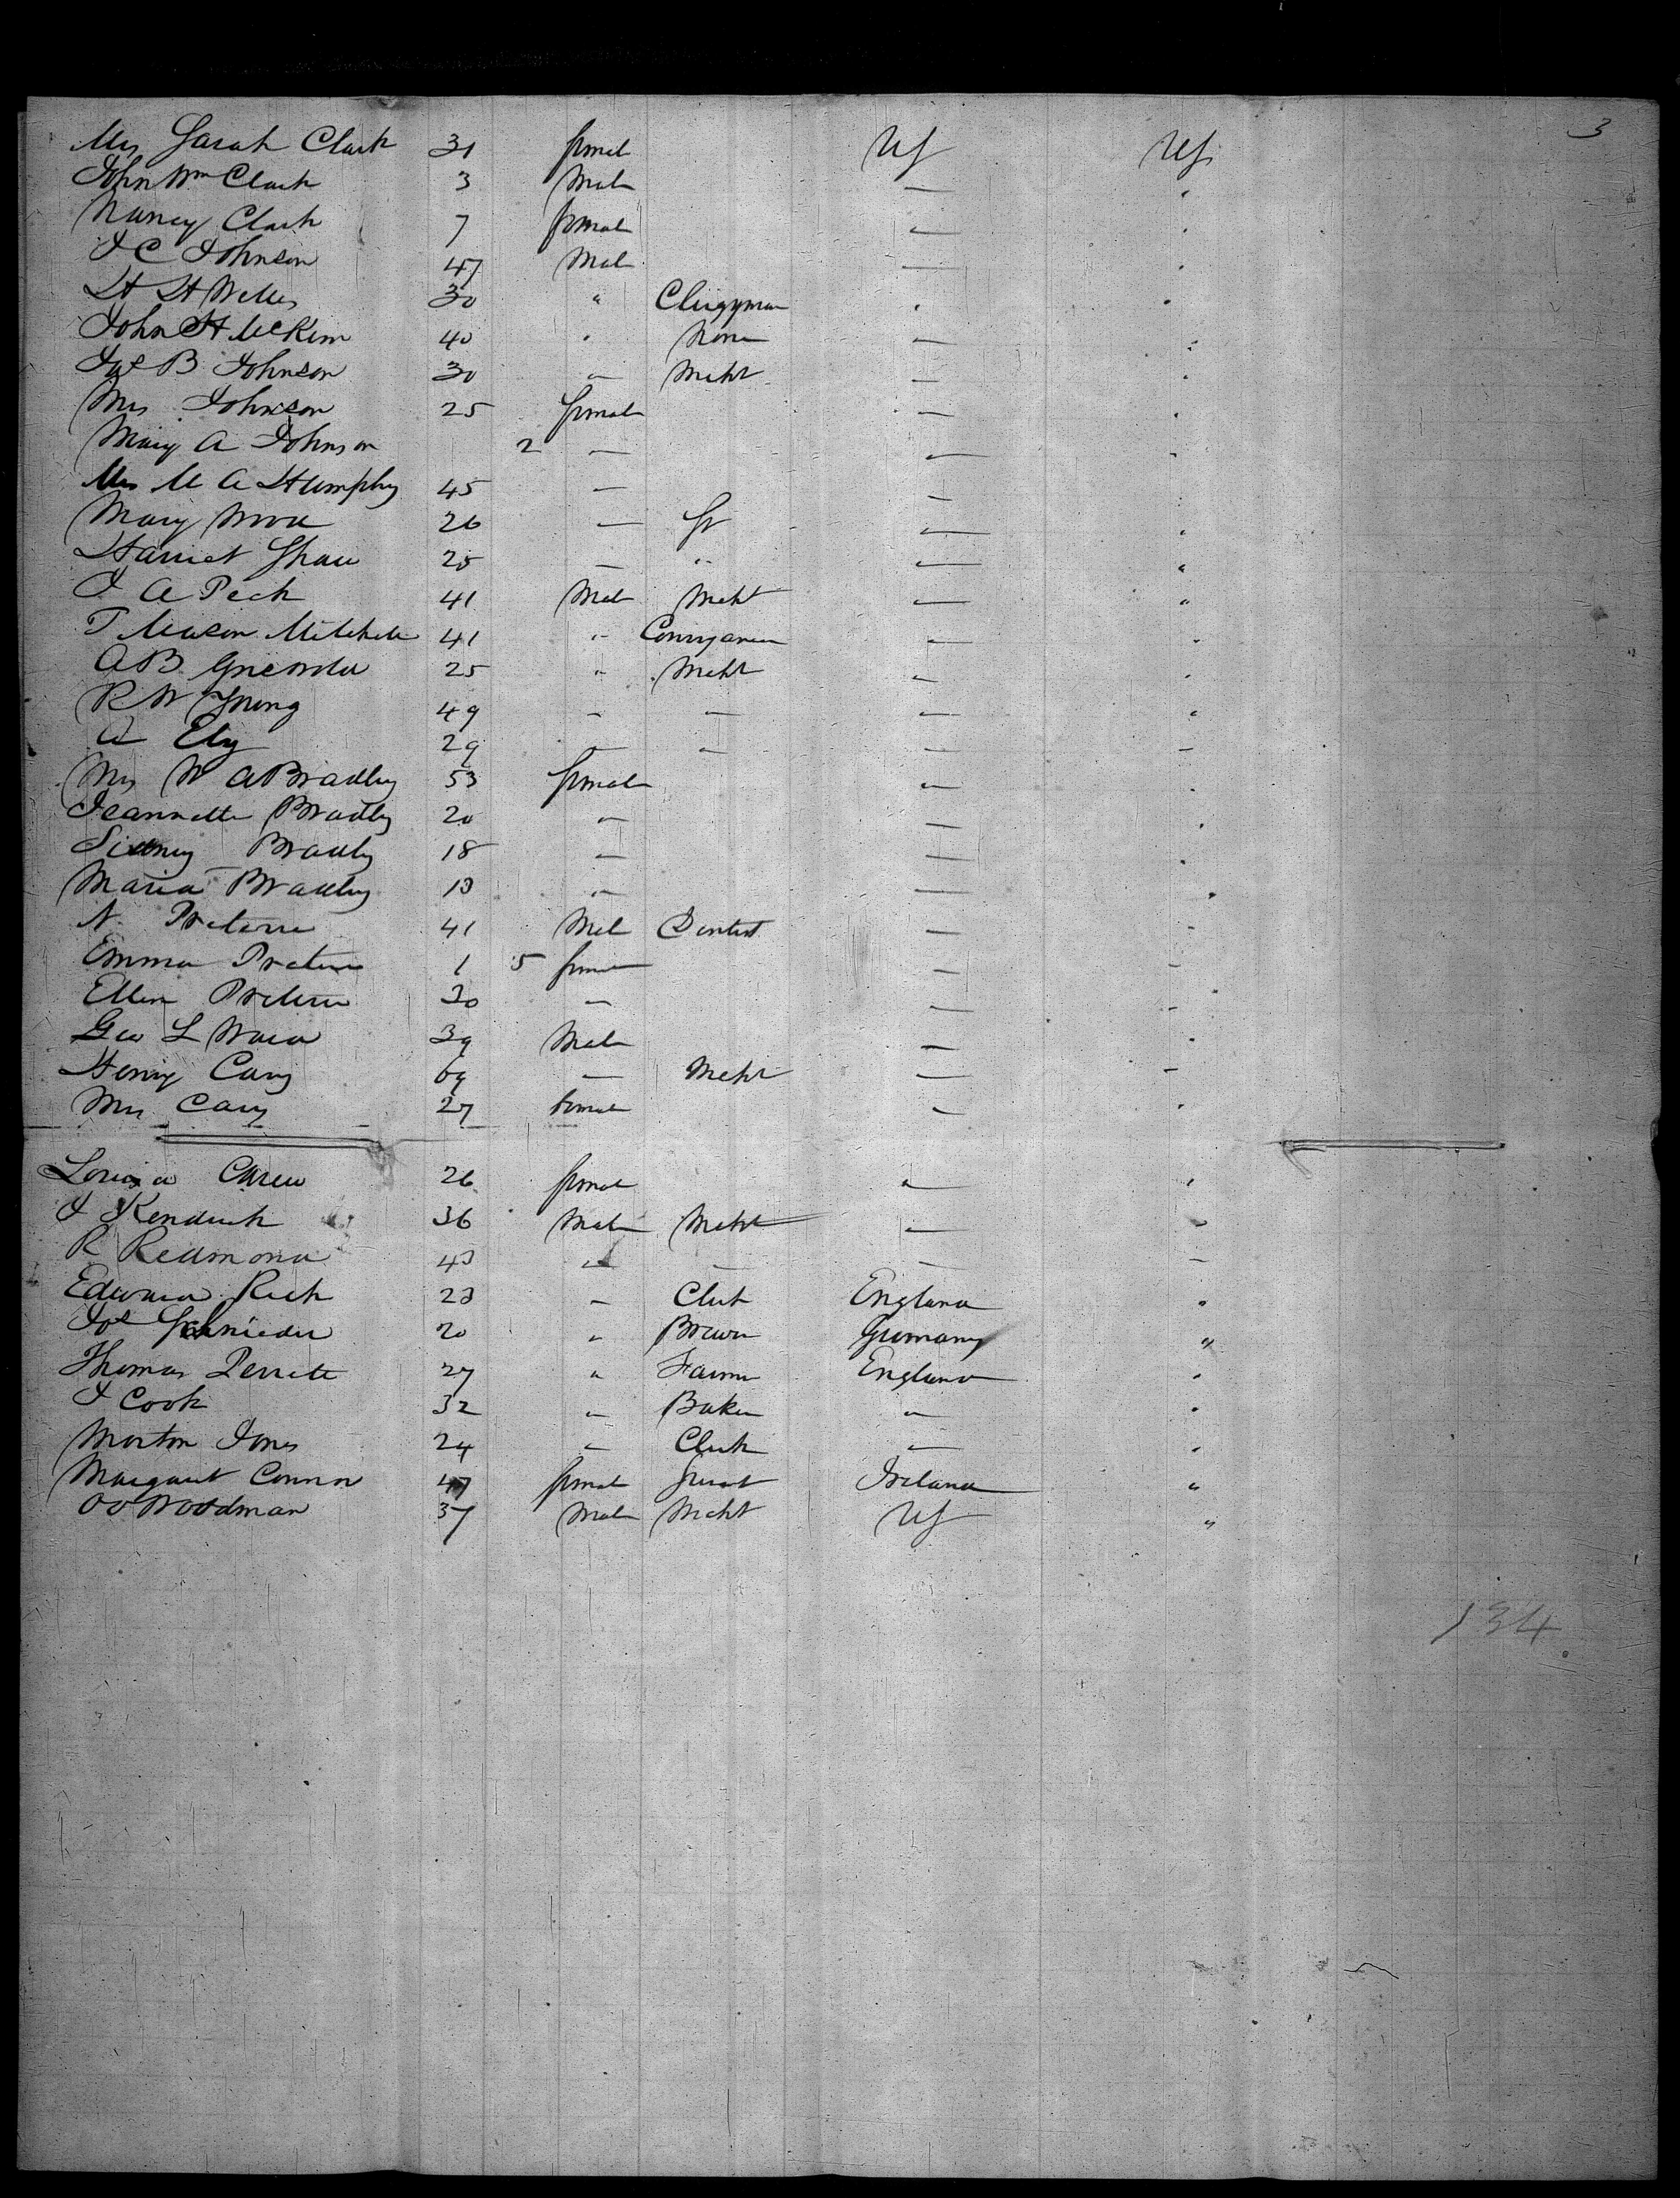 3
Mrs Sarah Clark 31 femal US US
John Wm Clark 3 Male — "
Nancy Clark 7 female — "
J C Johnson 47 Male — "
H H Welles 30 " Clergyman " "
John H McKim 40 " None — "
Jas B Johnson 30 — Mcht — "
Mrs Johnson 25 female — "
Mary A Johnson 2 — — "
Mrs M A Humphry 45 — — "
Mary 26 — — "
Harriet Shaw 25 — " — "
J A Peck 41 Male Mcht — "
T Mason Mitchell 41 " — "
A B 25 " Mcht — "
R W Young 49 — — — "
A Ely 29 — — — —
Mrs W A Bradley 53 female — "
Jeannette Bradley 20 — — "
Sidney Bradley 18 — — "
Maria Bradley 13 — — "
A Preterre 41 Male Dentist — "
Emma Preterre 1 5 female — —
Ellen Preterre 30 — — —
Geo L Ward 39 Male — "
Henry Cary 69 — Mcht — —
Mrs Cary 27 female — "
Louisa Carew 26 female — "
J Kendrick 36 Male Mcht — "
R Redmond 43 " — — —
Edward Rich 23 — Clerk England "
Jos Schnieder 20 " Brewer Germany "
Thomas 27 " Farmer England "
J Cook 32 — Baker — "
Morton Jones 24 — Clerk — "
Margaret Connor 47 female Servt Ireland "
Woodman 37 Male Mcht US "
134